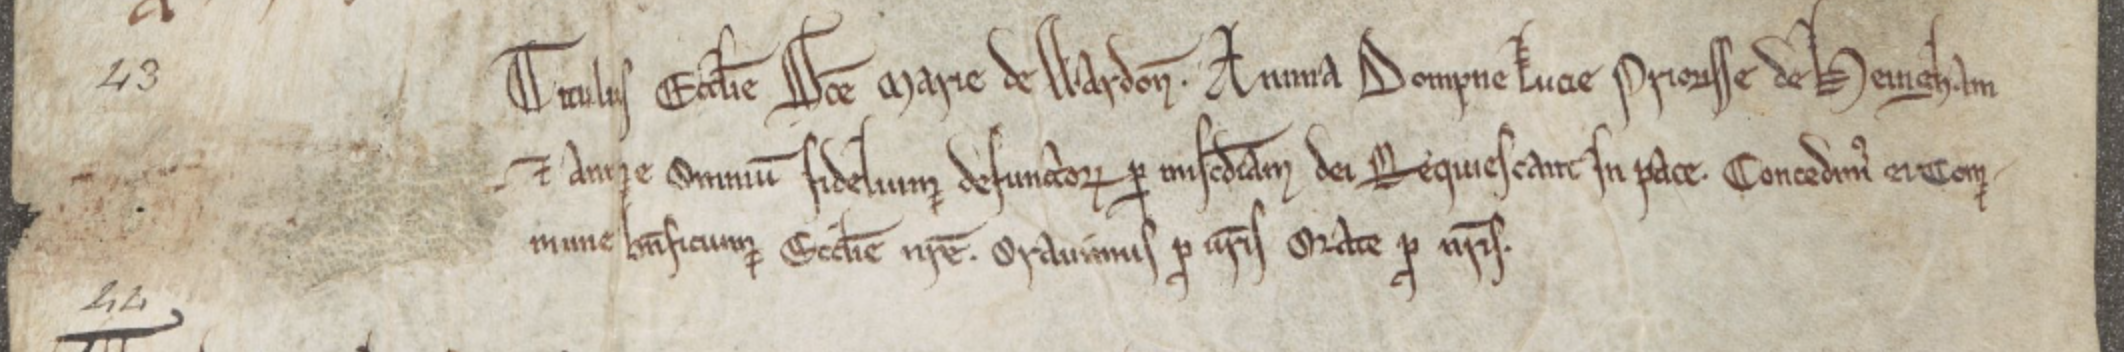 43
Titulus Eccl̄ie Sc̄e Marie de Wardon̄. Anima Dompne Lucie Priorisse de Heingham
⁊ anime omniū fidelium defunctoꝝ ꝑ mis̄cdiam dei Requiescant In pace. Concedimꝰ ei Com
mune bn̄ficium Eccl̄ie nr̄e. Orauimus ꝓ ur̄is Orate ꝓ nr̄is.
44